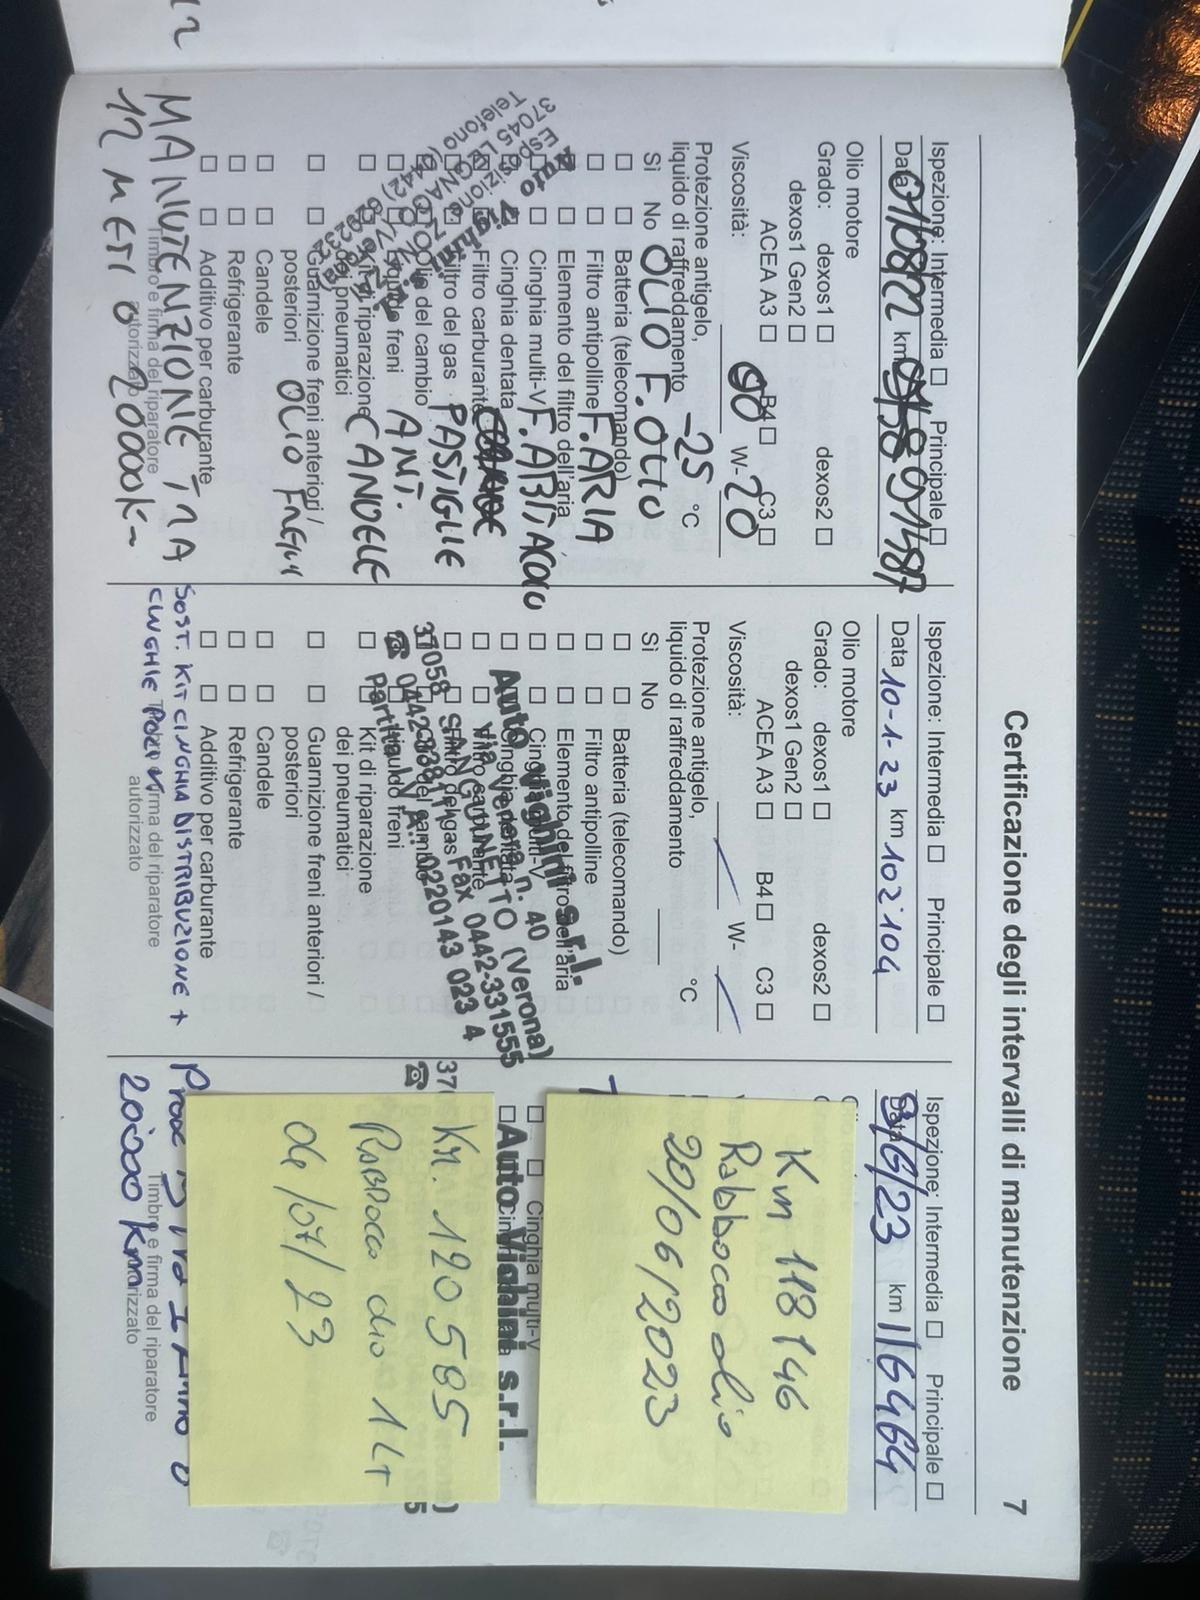 Certificazione degli intervalli di manutenzione 7
Ispezione: Intermedia ☐ Principale ☐
Data 01/08/22 km 91487
Olio motore
Grado: dexos1 ☐ dexos2 ☐
dexos1 Gen2 ☐
ACEA A3 ☐ B4 ☐ C3 ☐
Viscosità: 00 W- 20
Protezione antigelo,
liquido di raffreddamento -25 °C
Sì No OLIO F. OLIO
☐ ☐ Batteria (telecomando)
☐ ☐ Filtro antipolline F. ARIA
☐ ☐ Elemento del filtro dell'aria
☐ ☐ Cinghia multi-V F. ABITACOLO
☐ ☐ Cinghia dentata
☐ ☐ Filtro carburante
☐ ☐ Filtro del gas PASTIGLIE
☐ ☐ Olio del cambio
☐ ☐ Liquido freni ANT.
☐ ☐ Kit di riparazione CANDELE
dei pneumatici
☐ ☐ Guarnizione freni anteriori /
posteriori OLIO FRENI
☐ ☐ Candele
☐ ☐ Refrigerante
☐ ☐ Additivo per carburante
Auto Vighini
Esposizione
37045 LEGNAGO
Telefono (0442)
MANUTENZIONE TRA
Timbro e firma del riparatore
autorizzato
12 MESI O 20000 K
Ispezione: Intermedia ☐ Principale ☐
Data 10-1-23 km 102'104
Olio motore
Grado: dexos1 ☐ dexos2 ☐
dexos1 Gen2 ☐
ACEA A3 ☐ B4 ☐ C3 ☐
Viscosità: / W- /
Protezione antigelo,
liquido di raffreddamento °C
Sì No
☐ ☐ Batteria (telecomando)
☐ ☐ Filtro antipolline
☐ ☐ Elemento del filtro dell'aria
☐ ☐ Cinghia multi-V
☐ ☐ Cinghia dentata
☐ ☐ Filtro carburante
☐ ☐ Filtro del gas
☐ ☐ Olio del cambio
☐ ☐ Liquido freni
☐ ☐ Kit di riparazione
dei pneumatici
☐ ☐ Guarnizione freni anteriori /
posteriori
☐ ☐ Candele
☐ ☐ Refrigerante
☐ ☐ Additivo per carburante
Auto Vighini s.r.l.
Via Venera, n. 40
37058 SANGUINETTO (Verona)
Fax 0442-331555
Partita I.V.A.: 0220143 023 4
SOST. KIT CINGHIA DISTRIBUZIONE +
CINGHIE POLY V
Timbro e firma del riparatore
autorizzato
Ispezione: Intermedia ☐ Principale ☐
Data 9/6/23 km 116464
Km 118146
Rabbocco olio
20/06/2023
☐ ☐ Cinghia multi-V
Auto Vighini s.r.l.
Km. 120 585
RABBOCCO OLIO 1 Lt
04/07/23
Timbro e firma del riparatore
autorizzato
20'000 Km